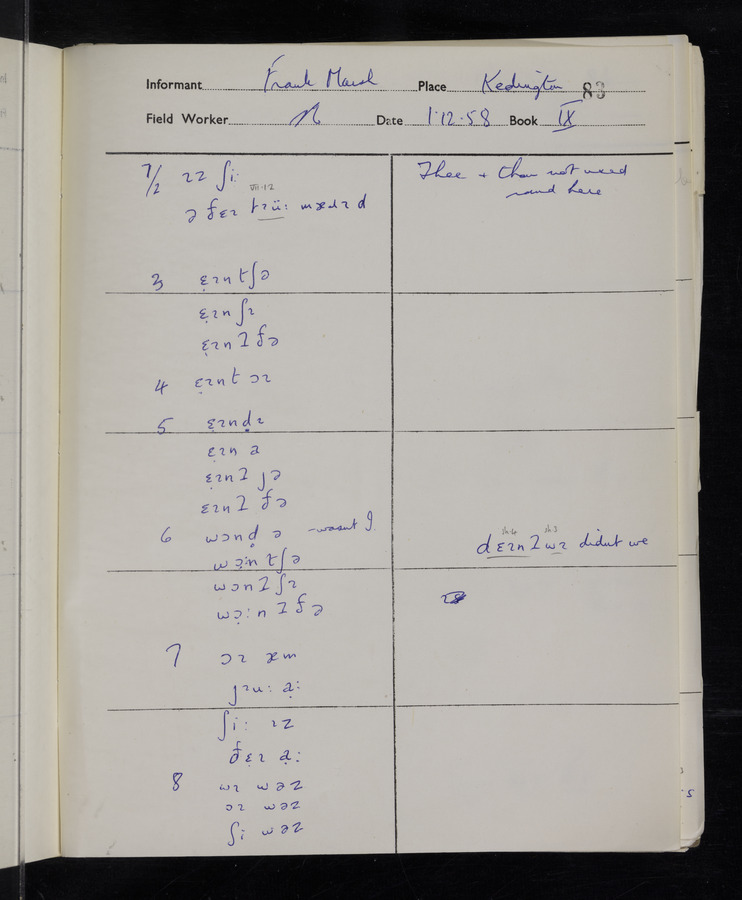 Informant Frank Marsh Place Kedington 83
Field Worker Date 1·12·58 Book IX
7/2 ɪz ʃi: Thee + thou not used
VII·1·2 round here
ə ðɛɪ tɪü: mæɹɪd
3 ɛ̣ɪntʃə
ɛ̣ɪnʃɪ
ɛ̣ɪnɪðə
4 ɛ̣ɪnt ɔɪ
5 ɛ̣ɪnd̥ɪ
ɛ̣ɪn ə
ɛ̣ɪnɪ jə
ɛ̣ɪnɪ ðə
6 wɔnd̥ ə - wasnt I dɛɪnɪwɪ didnt we
wɔ̣:ntʃə
wɔnɪʃɪ
wɔ̣:nɪðə
7 ɔɪ æm
jɪu: ạ:
ʃi: ɪz
ðɛɪ ạ:
8 wɪ wəz
ɔɪ wəz
ʃi wəz